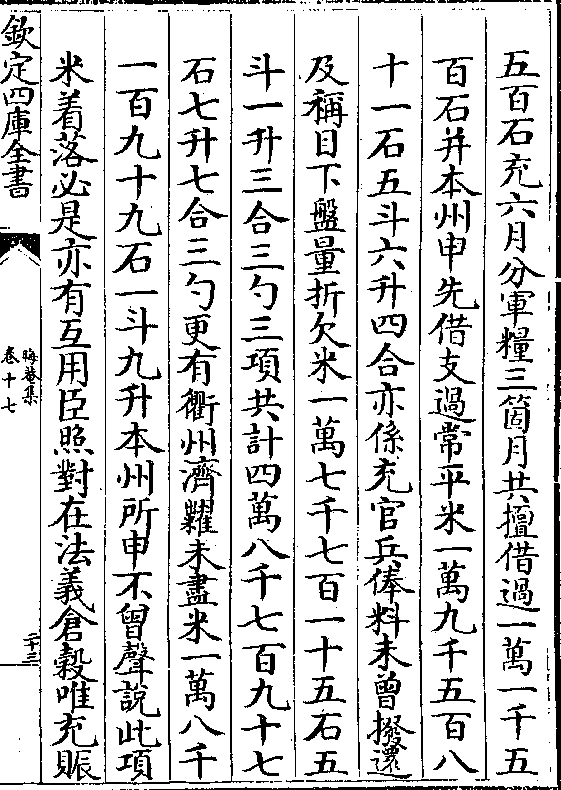 五百石充六月分軍糧三箇月共擅借過一萬一千五
百石并本州申先借支過常平米一萬九千五百八
十一石五斗六升四合亦係充官兵俸料未曾撥還
及稱目下盤量折欠米一萬七千七百一十五石五
斗一升三合三勺三項共計四萬八千七百九十七
石七升七合三勺更有衢州濟糶未盡米一萬八千
一百九十九石一斗九升本州所申不曾聲說此項
米着落必是亦有互用臣照對在法義倉穀唯充賑
欽定四庫全書
晦菴集
卷十七
二十三